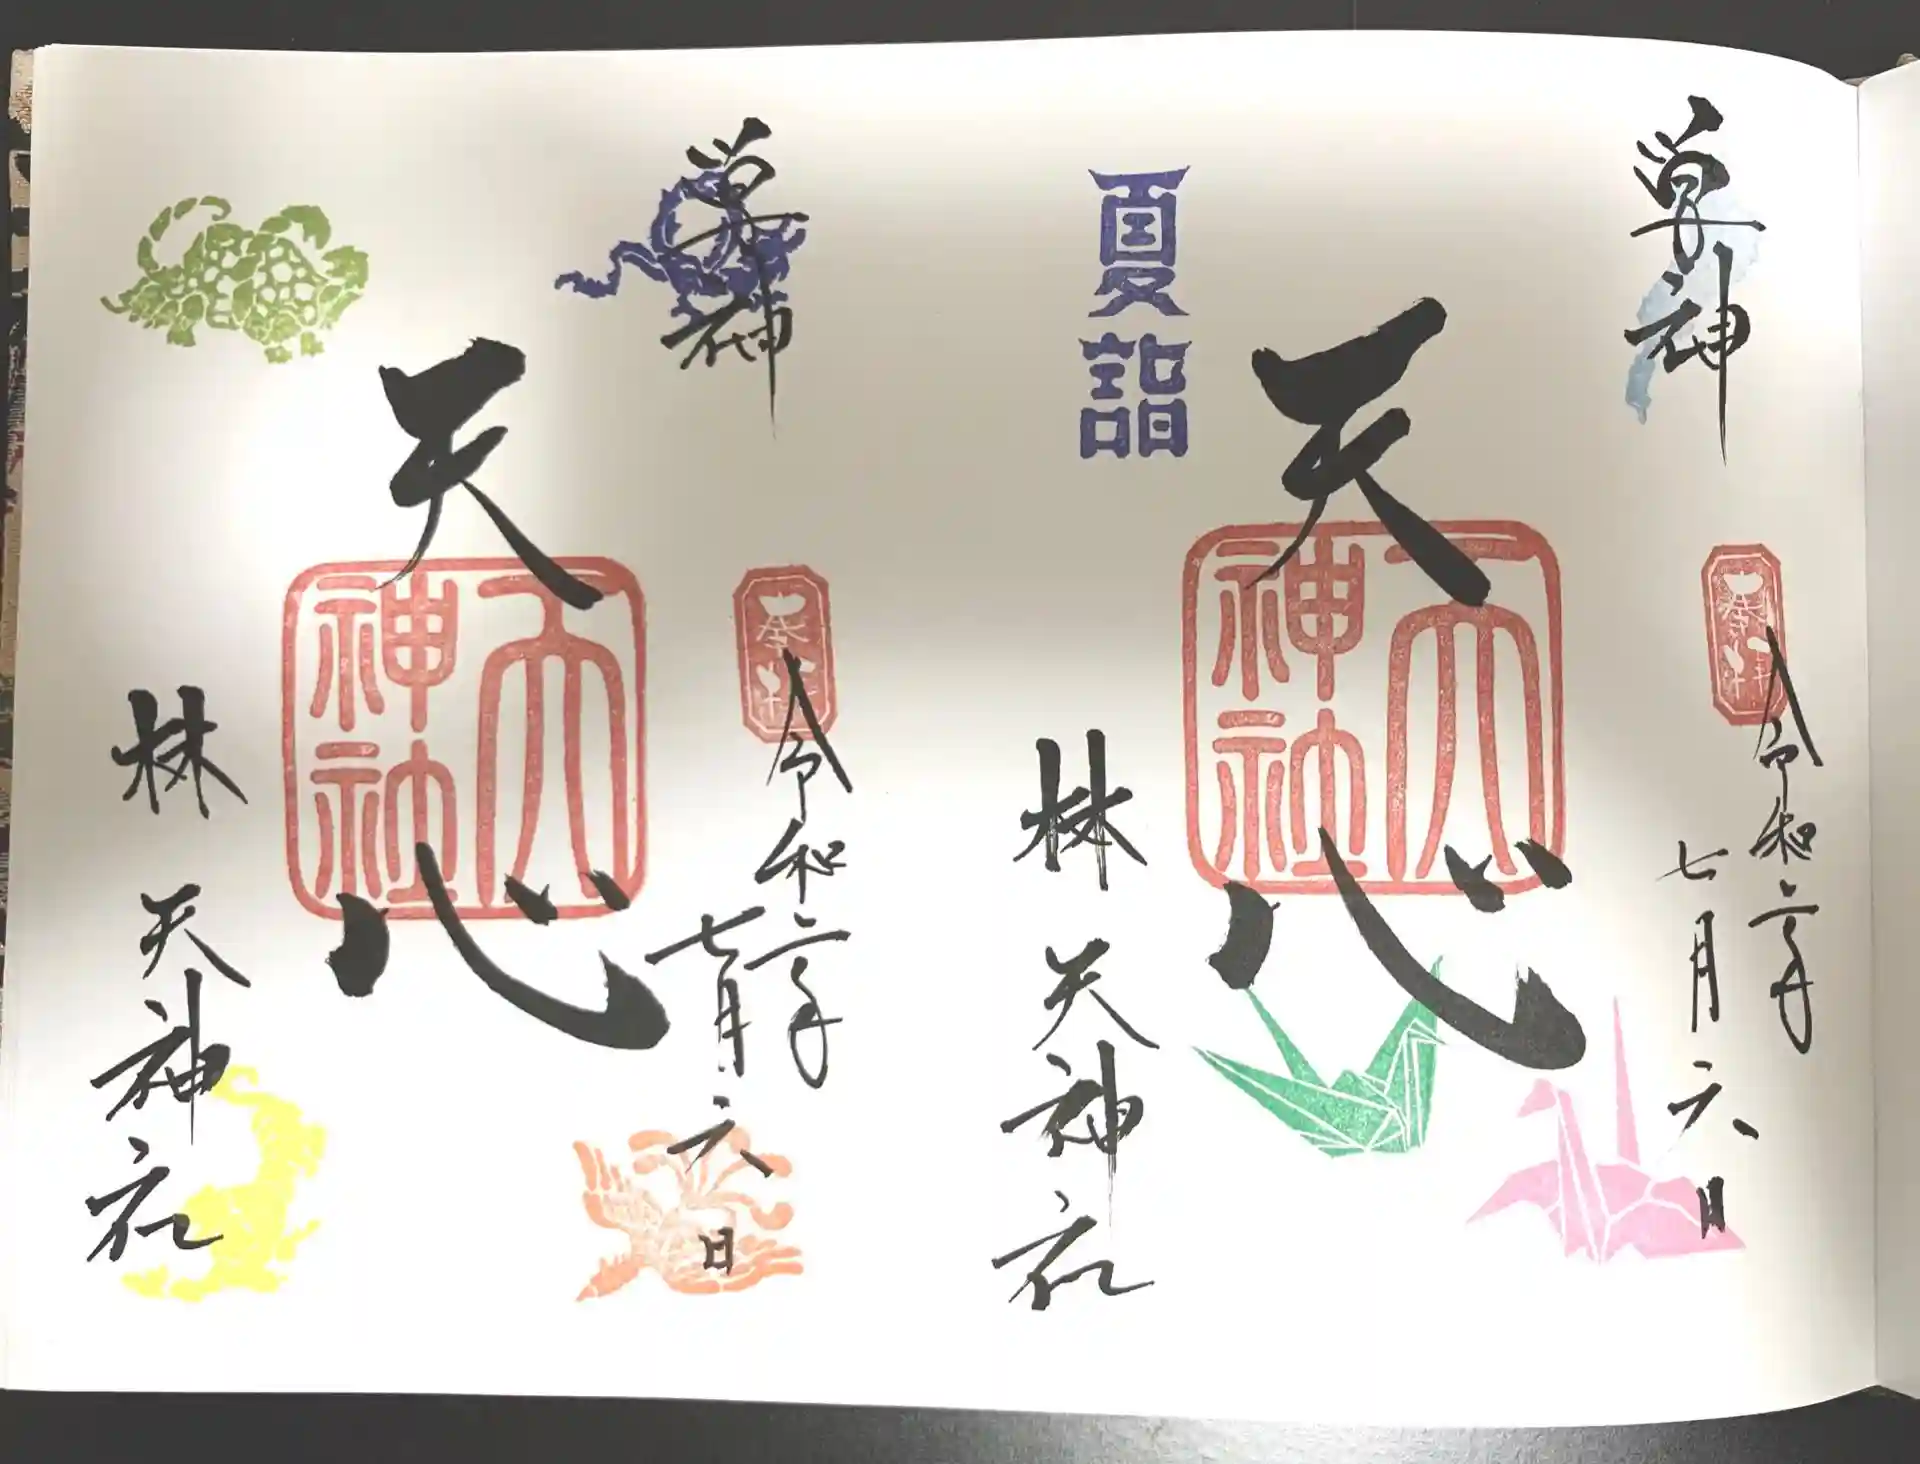 奉拝
令和二年
七月六日
天心
天神社
夏詣
林天神社
奉拝
令和二年
七月六日
天心
天神社
林天神社